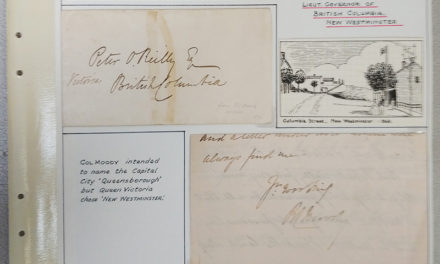 LIEUT GOVERNOR OF
BRITISH COLUMBIA
NEW WESTMINSTER
Peter O'Reilly Esq
Victoria
British Columbia
COLUMBIA STREET, NEW WESTMINSTER
COL MOODY INTENDED
TO NAME THE CAPITAL
CITY 'QUEENSBOROUGH'
BUT QUEEN VICTORIA
CHOSE 'NEW WESTMINSTER'.
and a letter
always find me